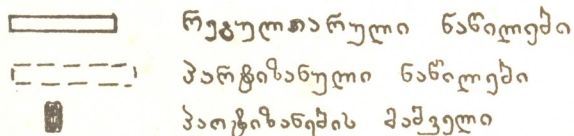 რეგულიარული ნაწილები
პარტიზანული ნაწილები
პარტიზანების მაშველი